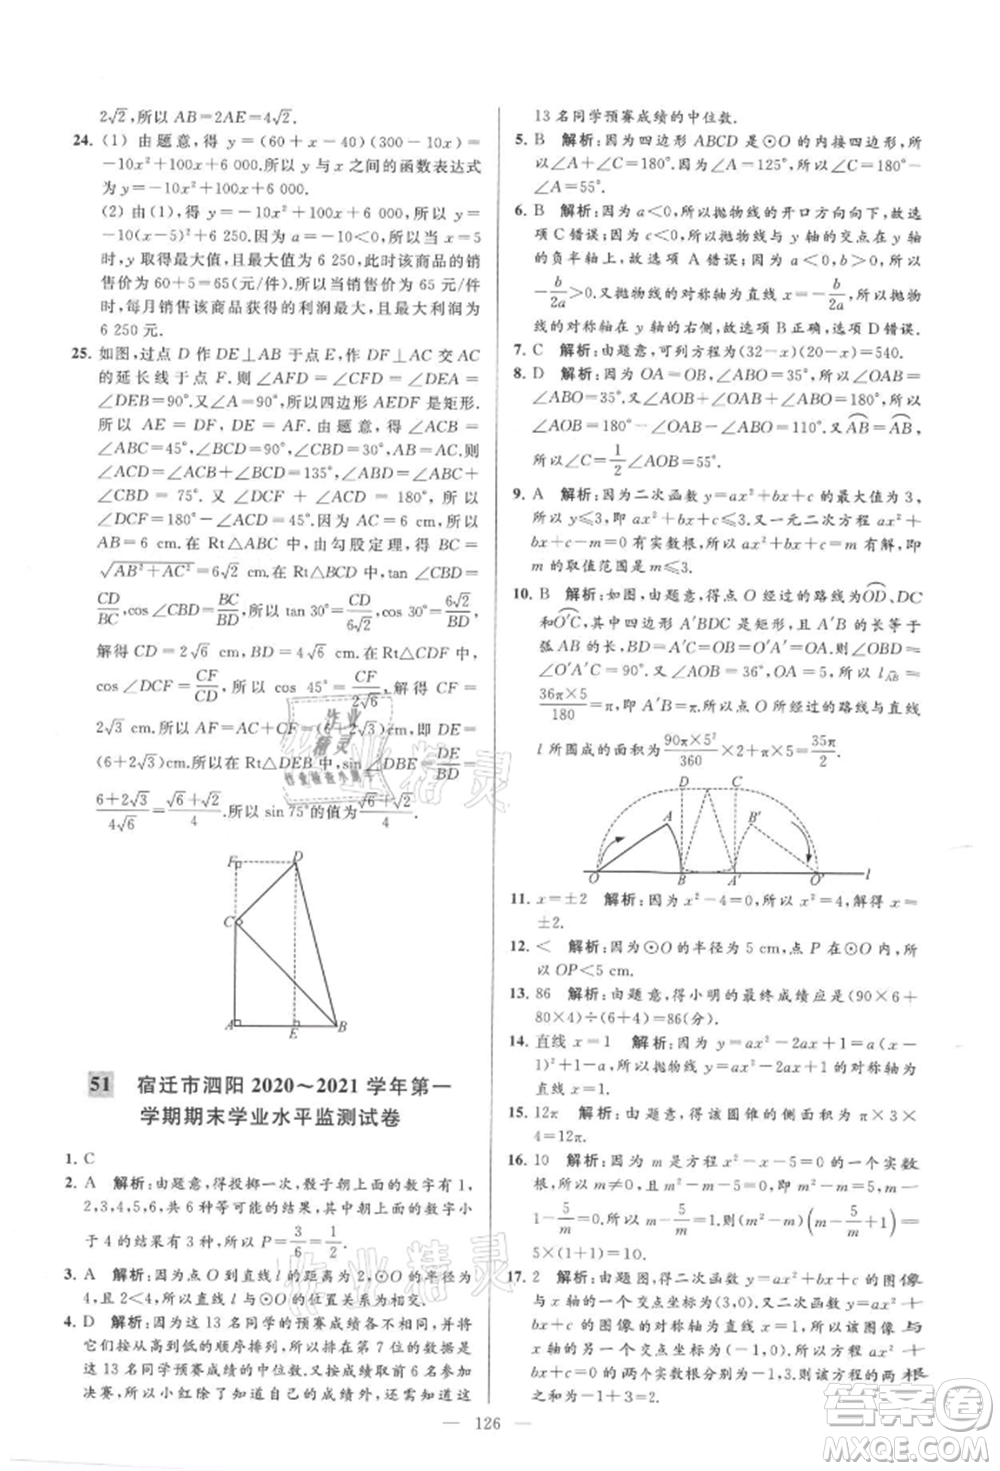 2√2, 所以 AB=2AE=4√2.
24. (1) 由题意, 得 y=(60+x-40)(300-10x)=
-10x²+100x+6 000.所以 y 与 x 之间的函数表达式
为 y=-10x²+100x+6 000.
(2) 由(1), 得 y=-10x²+100x+6 000, 所以 y=
-10(x-5)²+6 250. 因为 a=-10<0, 所以当 x=5
时, y 取得最大值, 且最大值为 6 250, 此时该商品的销
售价为 60+5=65(元/件). 所以当销售价为 65 元/件
时, 每月销售该商品获得的利润最大, 最大利润为
6 250 元.
25. 如图, 过点 D 作 DE⊥AB 于点 E, DF⊥AC 交 AC
的延长线于点 F, 则∠AFD=∠DEA=
∠DEB=90°. 又∠A=90°, 所以四边形 AEDF 是矩形.
所以 AE=DF, DE=AF. 由题意, 得∠ACB=
∠ABC=45°, ∠BCD=90°, ∠CBD=30°, AB=AC. 则
∠ACD=∠ACB+∠BCD=135°, ∠ABD=∠ABC+
∠CBD=75°. 又∠ACD+∠DCF=180°, 所以
∠DCF=180°-∠ACD=45°. 因为AC=6 cm, 所以
AB=6 cm. 在 Rt△ABC 中, 由勾股定理, 得 BC=
√(AB²+AC²)=6√2 cm. 在 Rt△BCD 中, tan∠CBD=
CD/BC, cos∠CBD=BC/BD, 所以 tan 30°=CD/6√2, cos 30°=6√2/BD,
解得 CD=2√6 cm, BD=4√6 cm. 在 Rt△CDF 中,
cos∠DCF=CF/CD, 所以 cos 45°=CF/2√6, 解得 CF=
2√3 cm, 所以 AF=AC+CF=(6+2√3)cm, 即 DE=
(6+2√3)cm. 所以在 Rt△DEB 中, sin∠DBE=DE/BD=
(6+2√3)/4√6=(√6+√2)/4. 所以 sin 75°的值为(√6+√2)/4.
F D
C
A E B
51 宿迁市泗阳 2020～2021 学年第一
学期期末学业水平监测试卷
1. C
2. A 解析: 由题意, 得投掷一次, 骰子朝上一面可能有 1,
2,3,4,5,6 共 6 种等可能的结果, 其中朝上一面的数小
于 4 的结果有 3 种, 所以 P=3/6=1/2.
3. A 解析: 因为点 O 到直线 l 的距离为 2, ⊙O 的半径为 4,
且 2<4, 所以直线 l 与⊙O 的位置关系为相交.
4. D 解析: 因为这 13 名同学的预赛成绩各不相同, 并将
它们从小到大顺序排列, 所以处在第 7 位的分数是
这 13 名同学预赛成绩的中位数. 又取前 6 名同学参加
决赛, 所以小红除了知道自己的成绩外, 还需要知道这
13 名同学预赛成绩的中位数.
5. B 解析: 因为四边形 ABCD 是⊙O 的内接四边形, 所
以∠A+∠C=180°. 因为∠A=125°, 所以∠C=180°-
∠A=55°.
6. B 解析: 因为 a<0, 所以抛物线的开口方向向下, 故选
项 C 错误; 因为 c<0, 所以抛物线与 y 轴的交点在 y 轴
的负半轴上, 故选项 A 错误; 因为 a<0, b>0, 所以
-b/2a>0. 又抛物线的对称轴为直线 x=-b/2a, 所以抛物
线的对称轴在 y 轴的右侧, 故选项 D 错误.
7. C 解析: 由题意, 可列方程为(32-x)(20-x)=540.
8. D 解析: 因为 OA=OB, ∠ABO=35°, 所以∠OAB=
∠ABO=35°. 又∠OAB+∠ABO+∠AOB=180°, 所以
∠AOB=180°-∠OAB-∠ABO=110°. 又AB=AB,
所以∠C=1/2∠AOB=55°.
9. A 解析: 因为二次函数 y=ax²+bx+c 的最大值为 3,
所以 y≤3, 即 ax²+bx+c≤3. 又一元二次方程 ax²+
bx+c-m=0 有实数根, 即 ax²+bx+c=m 有解, 所以
m 的取值范围是 m≤3.
10. B 解析: 如图, 由题意, 得点 O 经过的路线为OD、DC
和O'C, 其中四边形 A'BDC 是矩形, 且 A'B 的长等于
弧 AB 的长, BD=A'C=OB=OA=5. 则∠OBD=
∠O'A'C=90°. 又∠AOB=36°, OA=5, 所以 l AB=
36π×5/180=π. 所以 A'B=π. 所以点 O 经过的路线与直线
l 所围成的面积为 90π×5²/360×2+5π=35π/2.
D C
A B'
O B A' O' l
11. x=±2 解析: 因为 x²-4=0, 所以 x²=4, 解得 x=
±2.
12. < 解析: 因为⊙O 的半径为 5 cm, 点 P 在⊙O 内, 所
以 OP<5 cm.
13. 86 解析: 由题意, 得小明的最终成绩应是(90×6+
80×4)÷(6+4)=86(分).
14. 直线 x=1 解析: 因为 y=ax²-2ax+b=
a(x-1)²-a+b, 所以二次函数 y=ax²-2ax+b 图像
的对称轴是直线 x=1.
15. 12π 解析: 由题意, 得该圆锥的侧面积为
12π.
16. 10 解析: 因为 m 是方程 x²-x-5=0 的一个实数
根, 所以 m≠0, m²-m-5=0. 所以 m²-m=5, m-
1-5/m=0. 所以 m-5/m=1. 则(m²-m)(m-5/m+1)=
5×(1+1)=10.
17. 2 解析: 由题图, 得二次函数 y=ax²+bx+c 的图像
与 x 轴的一个交点坐标为(3,0). 又二次函数 y=
ax²+bx+c 的图像的对称轴为直线 x=1, 所以该图像
与 x 轴的另一个交点坐标为(-1,0). 所以方程
ax²+bx+c=0 的两根为 x₁=-1, x₂=3. 所以两根
之和为-1+3=2.
— 126 —
作业
精灵
作业检查小助手
作业精灵
作业精灵
答案圈
MXQE.COM